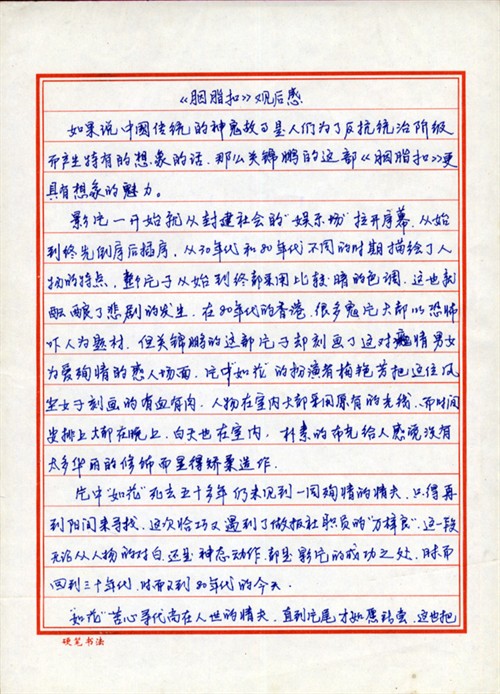 《胭脂扣》观后感
如果说中國传统的神鬼故事是人们为了反抗统治阶级
而产生特有的想象的话，那么关锦鹏的这部《胭脂扣》更
具有想象的魅力。
影片一开始就从封建社会的“娱乐场”拉开序幕，从始
到终先倒序后插序，从30年代和80年代不同的时期描绘了人
物的特点，整片子从始到终都采用比较暗的色调，这也就
酝酿了悲剧的发生，在80年代的香港，很多鬼片大都以恐怖
吓人为题材，但关锦鹏的这部片子却刻画了这对痴情男女
为爱殉情的悲人场面，片中“如花”的扮演者梅艳芳把这位风
尘女子刻画的有血有肉，人物在室内大都采用原有的光线，而时间
安排上大都在晚上，白天也在室内，朴素的布光给人感觉没有
太多华丽的修饰而显得矫柔造作。
片中“如花”死去五十多年仍未见到一同殉情的情夫，只得再
到阳间来寻找，这次恰巧又遇到了做报社职员的“万梓良”，这一段
无论从人物的对白，还是神态动作，都是影片的成功之处，时而
回到三十年代，时而又到80年代的今天。
“如花”苦心寻找尚在人世的情夫，直到片尾才如愿，这也把
硬笔书法